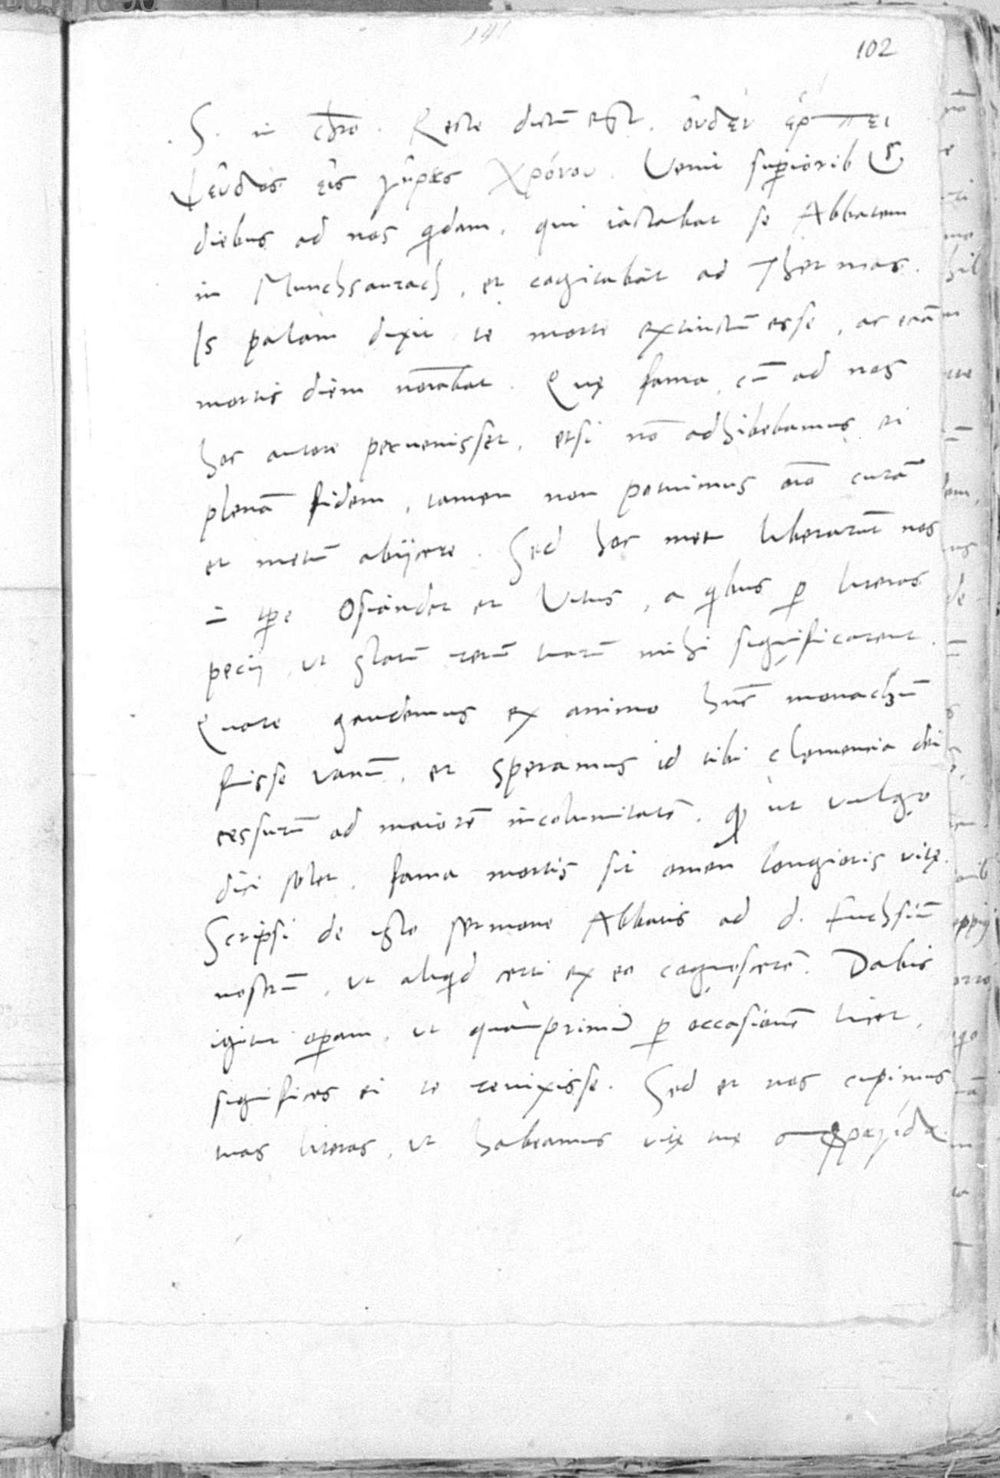 102
S. in chro. Recte dictū est. οὐδὲν ἕρπει
ψεῦδος εἰς γῆρας χρόνου. Venit superiorib9
diebus ad nos qdam, qui iactabat se Abbatem
in Munchsaurach, et cogitabat ad Thermas.
Is palam dixit te morte extinctū esse, ac etiā
mortis diem notabat. Quę fama cū ad nos
hoc autore pervenisset, etsi nō adhibebamus ei
plenā fidem, tamen non potuimus oīo curā
et metū abijcere. Sed hoc metu liberarūt nos
ī tpe Osiander et Vitus, a qbus p literas
petij, ut statū rerū tuarū mihi significarent.
Quare gaudemus ex animo hūc monachū
fuisse vanū, et speramus id tibi clementia dei
cessurū ad maiorē incolumitatē. qd ut vulgo
dici solet, fama mortis sit omen longioris vitę.
Scripsi de isto sermone Abbatis ad d. Fuchsiū
nostrū, ut aliqd certi ex eo cognoscerē. Dabis
igitur operam, ut quamprimū p occasionē licet,
significes ei te revixisse. Sed et nos cupimus
tuas literas, ut habeamus vitę tuę σφραγίδα.